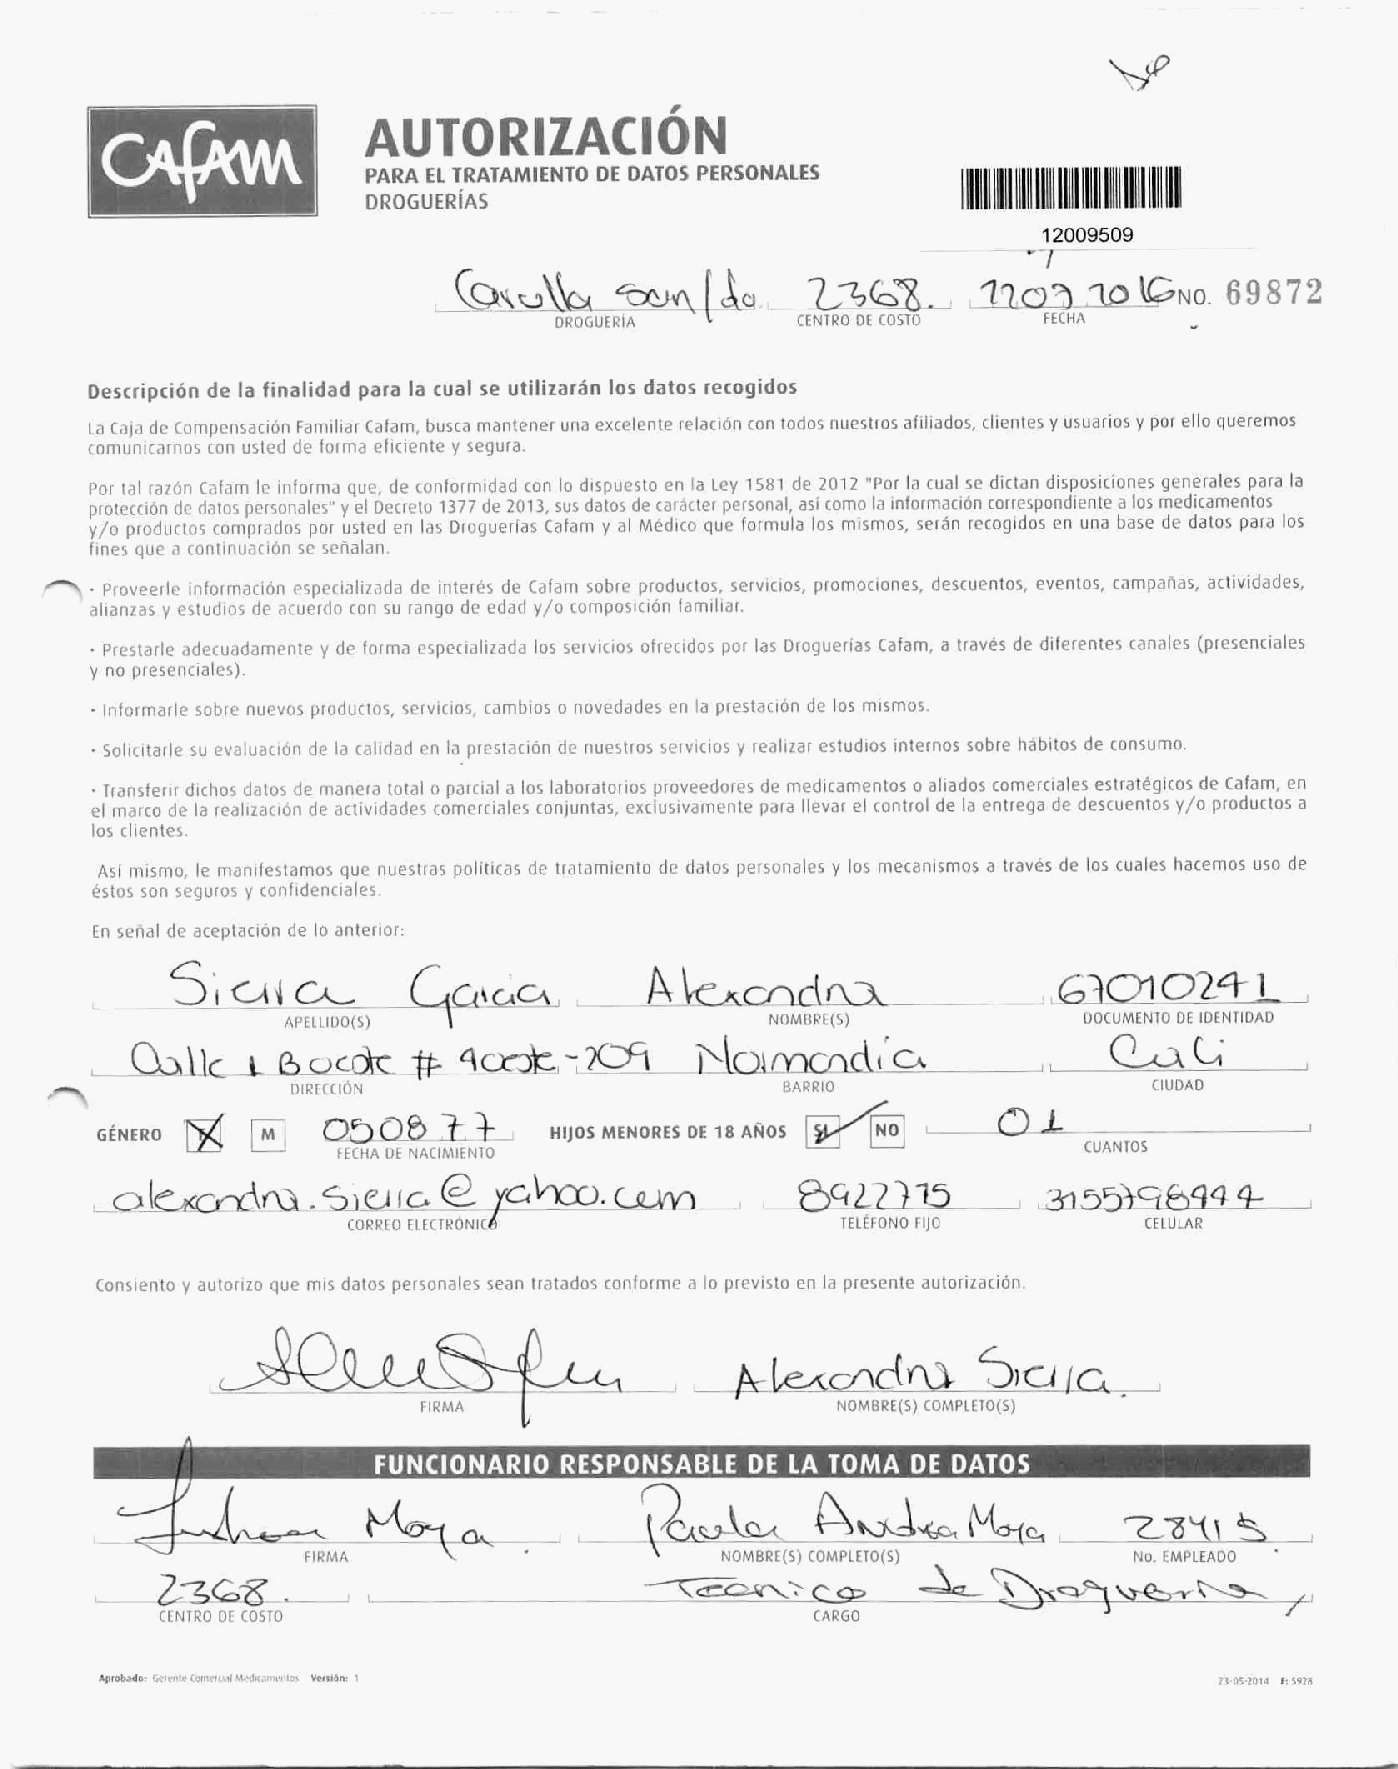 CAFAM
AUTORIZACIÓN
PARA EL TRATAMIENTO DE DATOS PERSONALES
DROGUERÍAS
12009509
Carulla San/do. 2368. 1709 2016 NO. 69872
DROGUERÍA CENTRO DE COSTO FECHA
Descripción de la finalidad para la cual se utilizarán los datos recogidos
La Caja de Compensación Familiar Cafam, busca mantener una excelente relación con todos nuestros afiliados, clientes y usuarios y por ello queremos
comunicarnos con usted de forma eficiente y segura.
Por tal razón Cafam le informa que, de conformidad con lo dispuesto en la Ley 1581 de 2012 "Por la cual se dictan disposiciones generales para la
protección de datos personales" y el Decreto 1377 de 2013, sus datos de carácter personal, así como la información correspondiente a los medicamentos
y/o productos comprados por usted en las Droguerías Cafam y al Médico que formula los mismos, serán recogidos en una base de datos para los
fines que a continuación se señalan.
· Proveerle información especializada de interés de Cafam sobre productos, servicios, promociones, descuentos, eventos, campañas, actividades,
alianzas y estudios de acuerdo con su rango de edad y/o composición familiar.
· Prestarle adecuadamente y de forma especializada los servicios ofrecidos por las Droguerías Cafam, a través de diferentes canales (presenciales
y no presenciales).
· Informarle sobre nuevos productos, servicios, cambios o novedades en la prestación de los mismos.
· Solicitarle su evaluación de la calidad en la prestación de nuestros servicios y realizar estudios internos sobre hábitos de consumo.
· Transferir dichos datos de manera total o parcial a los laboratorios proveedores de medicamentos o aliados comerciales estratégicos de Cafam, en
el marco de la realización de actividades comerciales conjuntas, exclusivamente para llevar el control de la entrega de descuentos y/o productos a
los clientes.
Así mismo, le manifestamos que nuestras políticas de tratamiento de datos personales y los mecanismos a través de los cuales hacemos uso de
éstos son seguros y confidenciales.
En señal de aceptación de lo anterior:
Sierra Garcia Alexandra 67010241
APELLIDO(S) NOMBRE(S) DOCUMENTO DE IDENTIDAD
Calle 1 B # -209 Normandia Cali
DIRECCIÓN BARRIO CIUDAD
GÉNERO M 050877 HIJOS MENORES DE 18 AÑOS SI NO 01
FECHA DE NACIMIENTO CUANTOS
alexandra.sierra@yahoo.com 8922775 3155798444
CORREO ELECTRÓNICO TELÉFONO FIJO CELULAR
Consiento y autorizo que mis datos personales sean tratados conforme a lo previsto en la presente autorización.
Alexandra Sierra.
FIRMA NOMBRE(S) COMPLETO(S)
FUNCIONARIO RESPONSABLE DE LA TOMA DE DATOS
Moya Paola Andrea Moya 28415
FIRMA NOMBRE(S) COMPLETO(S) No. EMPLEADO
2368. Tecnico de Drogueria
CENTRO DE COSTO CARGO
Aprobado: Gerente Comercial Medicamentos Versión: 1 23-05-2014 F: 5928